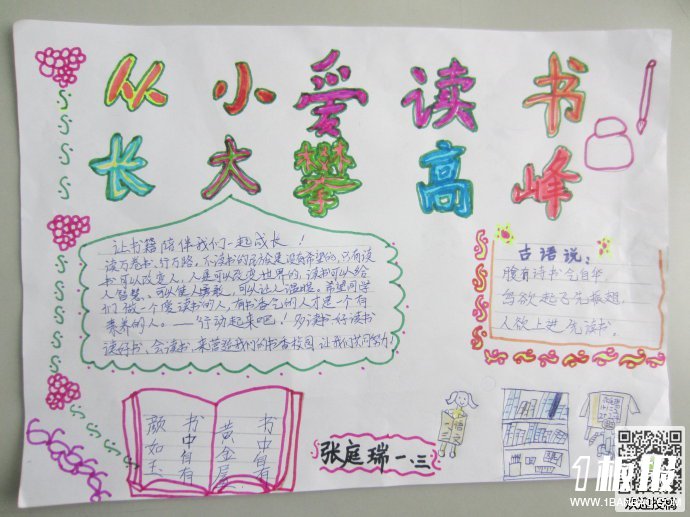 从小爱读书
长大攀高峰
让书籍陪伴我们一起成长！
读万卷书、行万路，不读书的民族是没有希望的，只有读
书可以改变人，人是可以改变世界的，读书可以给
人智慧、可以使人勇敢，可以让人温暖。希望同学
们做一个爱读书的人，有书香气的人才是一个有
素养的人。——行动起来吧！多读书、好读书
读好书、会读书，来营造我们的书香校园，让我们共同努力！
古语说：
腹有诗书气自华
鸟欲起飞先振翅，
人欲上进先读书。
书中自有
黄金屋
书中自有
颜如玉
张庭瑞一.三
1板报
WWW.1BANBAO.COM
欢迎投稿